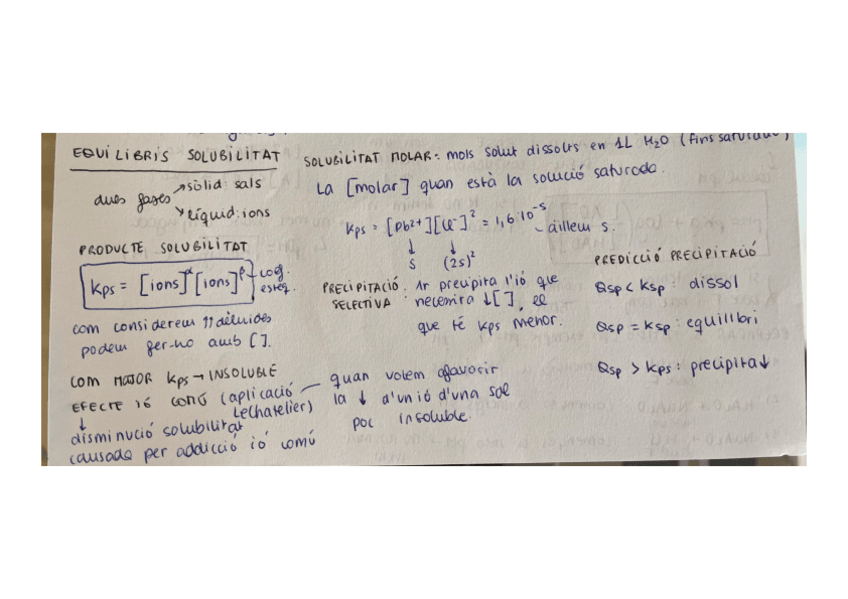 EQUILIBRIS SOLUBILITAT
dues fases
sòlid: sals
líquid: ions
PRODUCTE SOLUBILITAT
Kps = [ions]^α [ions]^β
coef. esteq.
com considerem 11 diluïdes
podem fer-ho amb [].
COM MAJOR Kps → INSOLUBLE
EFECTE IÓ COMÚ (aplicació
LeChatelier)
↓
disminució solubilitat
causada per addicció ió comú
SOLUBILITAT MOLAR: mols solut dissolts en 1L H2O (fins saturació)
La [molar] quan està la solució saturada.
Kps = [Pb2+][Cl-]^2 = 1,6·10^-5
aïllem s.
↓ ↓
S (2s)^2
PRECIPITACIÓ SELECTIVA: 1r precipita l'ió que
necessita ↓[], el
que té Kps menor.
quan volem afavorir
la ↓ d'un ió d'una sal
poc insoluble.
PREDICCIÓ PRECIPITACIÓ
Qsp < Ksp: dissol
Qsp = Ksp: equilibri
Qsp > Kps: precipita↓